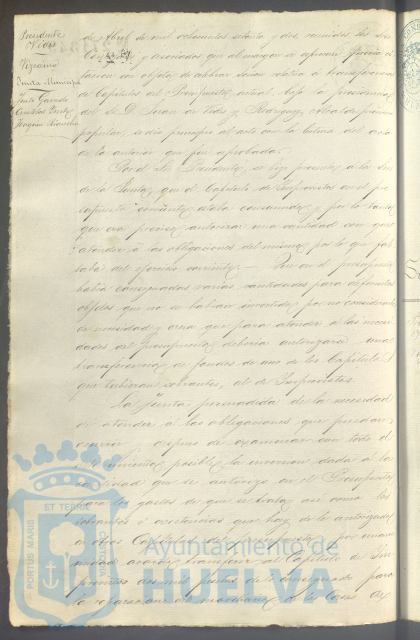 Presidente
Vizcaino
Junta Municipal
de Abril de mil ochocientos setenta y dos reunidos los Sres
y asociados que al margen se espresan
con objeto de celebrar sesion relativa a transferencia
de Capitulos del Presupuesto actual bajo la presidencia
del Sr. D. Alcalde primero
popular, se dio principio al acto con la lectura del acta
de la anterior que fue aprobada.
Por el Sr. Presidente se hizo presente a la
Junta, que el Capitulo de Imprevistos en el pre
supuesto corriente estaba consumido y por lo tanto
que era preciso autorizar una cantidad con que
atender a las obligaciones del mismo por lo que fal
taba del ejercicio corriente. Que en el presupuesto
habia consignadas varias cantidades para diferentes
objetos que no se habian invertido por no considerarlo
de necesidad y creia que para atender a las nece
sidades del presupuesto deberia autorizarse una
transferencia de fondos de uno de los Capitulos
que tubieran sobrantes, al de Imprevistos.
La Junta persuadida de la necesidad
de atender a las obligaciones que puedan
ocurrir despues de examinar con todo el
posible la inversion dada a las
cantidad que se autorizo en el Presupuesto
para los gastos de que se trata asi como los
sobrantes o existencias que hay de lo autorizado
en otros Capitulos del presupuesto por unani
midad acordó transferir al Capitulo de Im
previstos seis mil pesetas de lo consignado para
la reparacion de la Casa
ET TERRAE
PORTUS MARIS
CUSTODIA
Ayuntamiento de
HUELVA